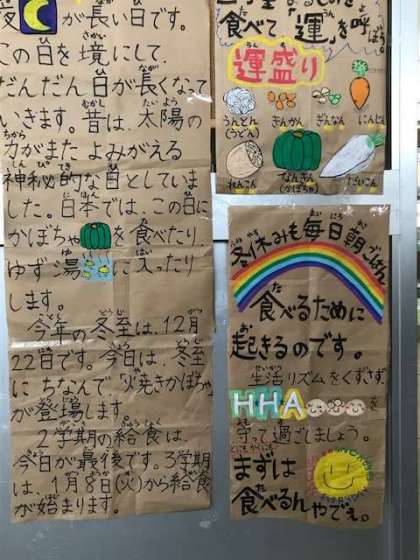 が長い日です。
この日を境にして
だんだん日が長くなって
いきます。昔は、太陽の
力がまた よみがえる
神秘的な日としていま
した。日本では、この日に
かぼちゃを食べたり、
ゆず湯に入ったり
します。
今年の冬至は、12月
22日です。今日は、冬至
にちなんで、"焼きかぼちゃ"
が登場します。
2学期の給食は、
今日が最後です。3学期
は、1月8日(火)から給食
が始まります。
食べて、「運」を呼ぼう。
運盛り
うんどん
(うどん)
きんかん
ぎんなん
にんじん
れんこん
なんきん
(かぼちゃ)
だいこん
冬休みも毎日朝ごはん
食べるために
起きるのです。
生活リズムをくずさず、
HHA
を
守って過ごしましょう。
まずは
食べるんやでぇ。